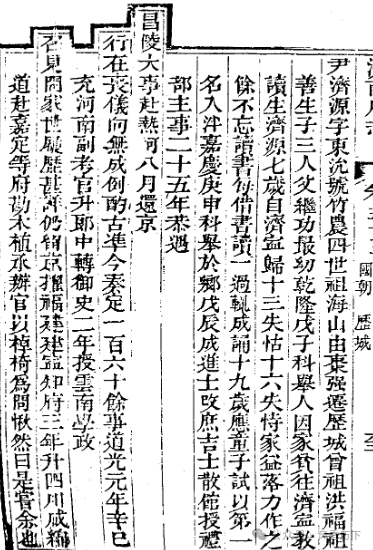 國朝 歷城
尹濟源字東沇號竹農四世祖海山由棗强遷歷城曾祖洪福祖
善生子三人父繼功最幼乾隆戊子科舉人因家貧往濟寧教
讀生濟源七歲自濟寧歸十三失怙十六失恃家益落力作之
餘不忘讀書每借書讀一過輒成誦十九歲應童子試以第一
名入泮嘉慶庚申科舉於鄉戊辰成進士改庶吉士散館授禮
部主事二十五年恭遇
昌陵大事赴熱河八月還京
行在喪儀向無成例酌古準今奏定一百六十餘事道光元年辛巳
充河南副考官升郎中轉御史二年授雲南學政
召見問家世履歷甚詳仍留京擢福建建寧知府三年升四川成綿
道赴嘉定等府勘木植承辦官以棹椅為問愀然曰是嘗余也